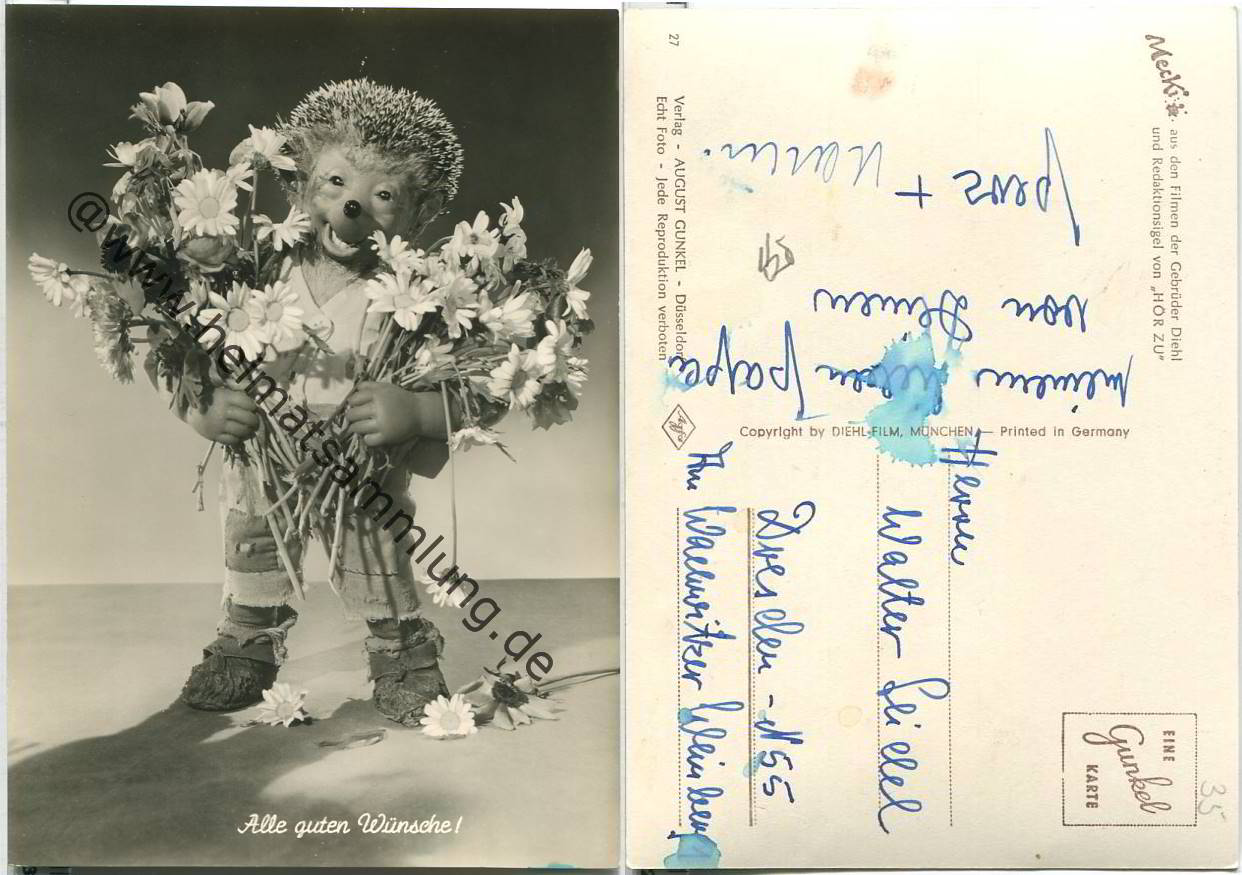 @www.heimatsammlung.de
Alle guten Wünsche!
Mecki
aus den Filmen der Gebrüder Diehl
und Redaktionsigel von „HÖR ZU"
27
Verlag - AUGUST GUNKEL - Düsseldorf
Echt Foto - Jede Reproduktion verboten
Agfa
Copyright by DIEHL-FILM, MÜNCHEN — Printed in Germany
EINE
Gunkel
KARTE
35
Herrn
Walter Seidel
Dresden - N 55
Am Wachwitzer Weinberg
meinem lieben Papa
von Deinen
+ Karin.